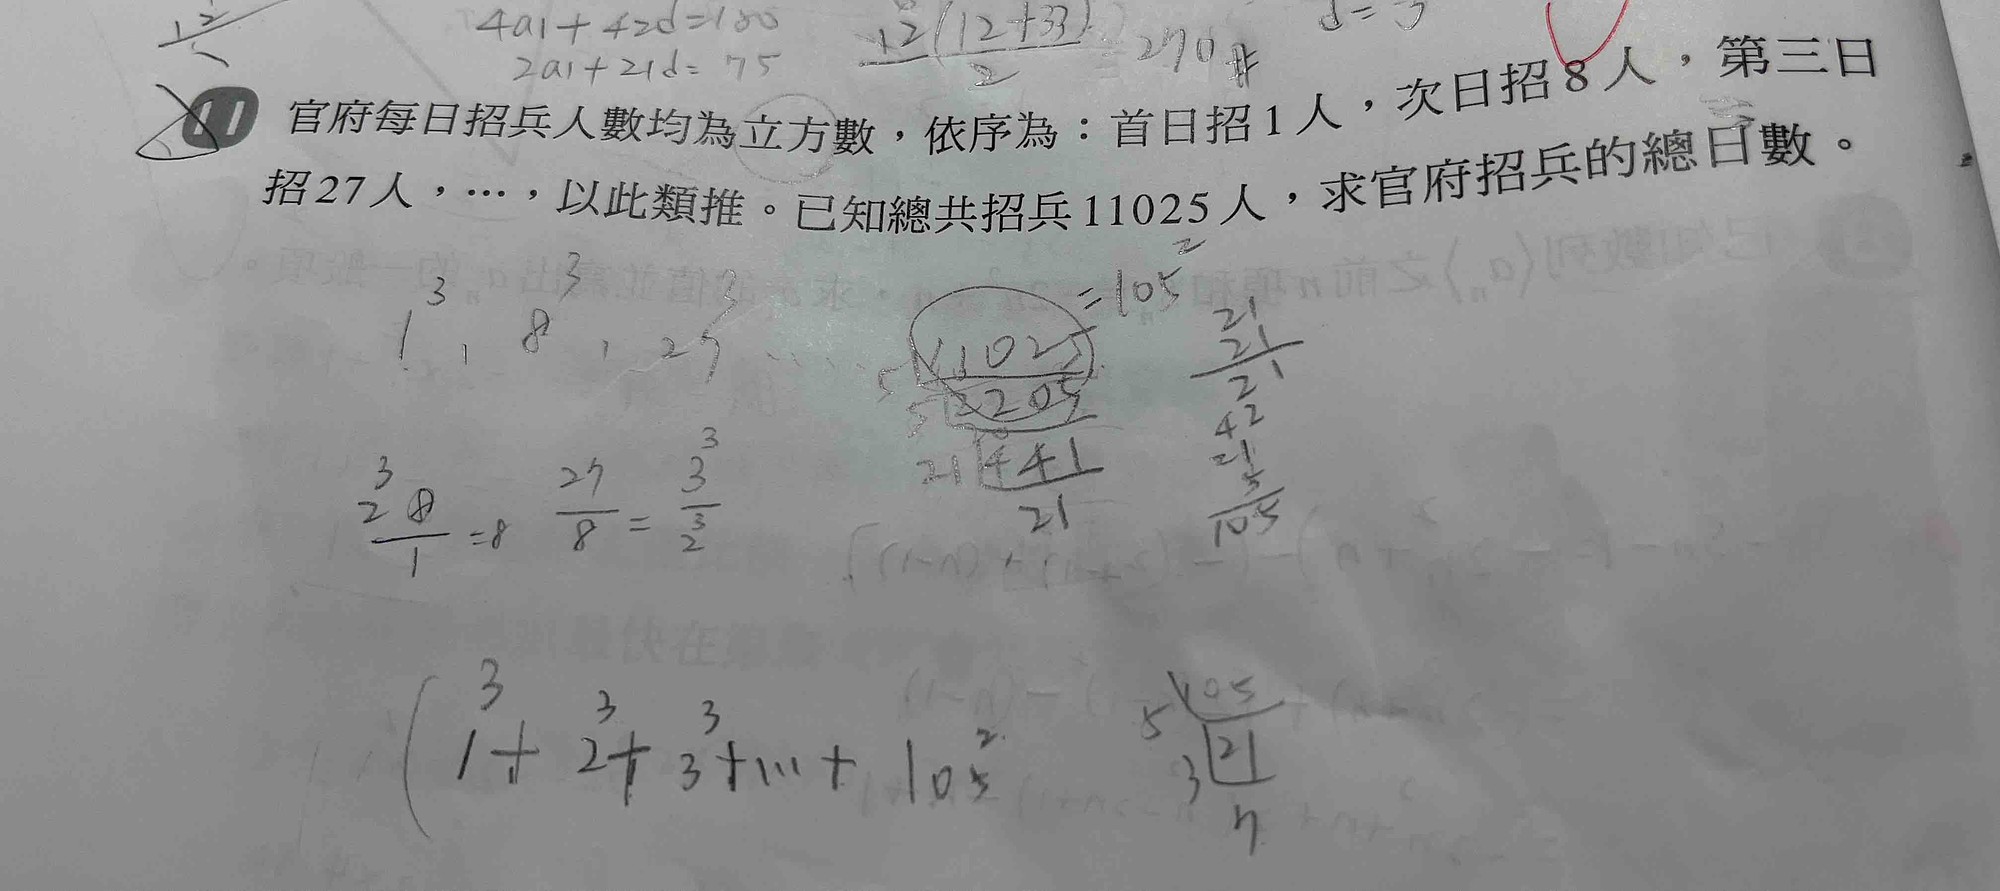 4a1+42d=180
2a1+21d=75
12(12+33)/2=270#
d=3
11 官府每日招兵人數均為立方數,依序為:首日招1人,次日招8人,第三日
招27人,…,以此類推。已知總共招兵11025人,求官府招兵的總日數。
1³, 8³, 27³ ……
5 11025 =105²
5 2205
21 441
21
21
21
21
42
21
5
105
2³ 8/1 =8 27/8 = 3³/2³
(1³+2³+3³+…+105²
5 105
3 21
7